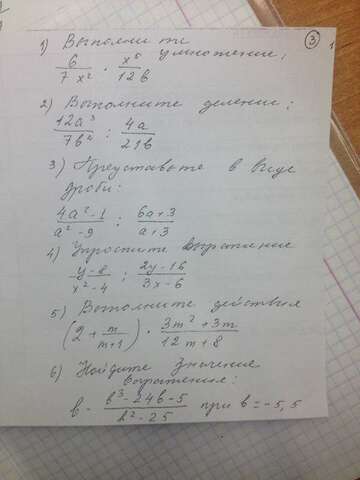 3
1) Выполните
умножение;
6/(7x²) · x⁵/(12b)
2) Выполните деление;
12a³/(7b²) : 4a/(21b)
3) Представьте в виде
дроби:
(4a²-1)/(a²-9) : (6a+3)/(a+3)
4) Упростите выражение
(y-8)/(x²-4) : (2y-16)/(3x-6)
5) Выполните действия
(2 + m/(m+1)) · (3m²+3m)/(12m+8)
6) Найдите значение
выражения:
b - (b³-24b-5)/(b²-25) при b = -5,5